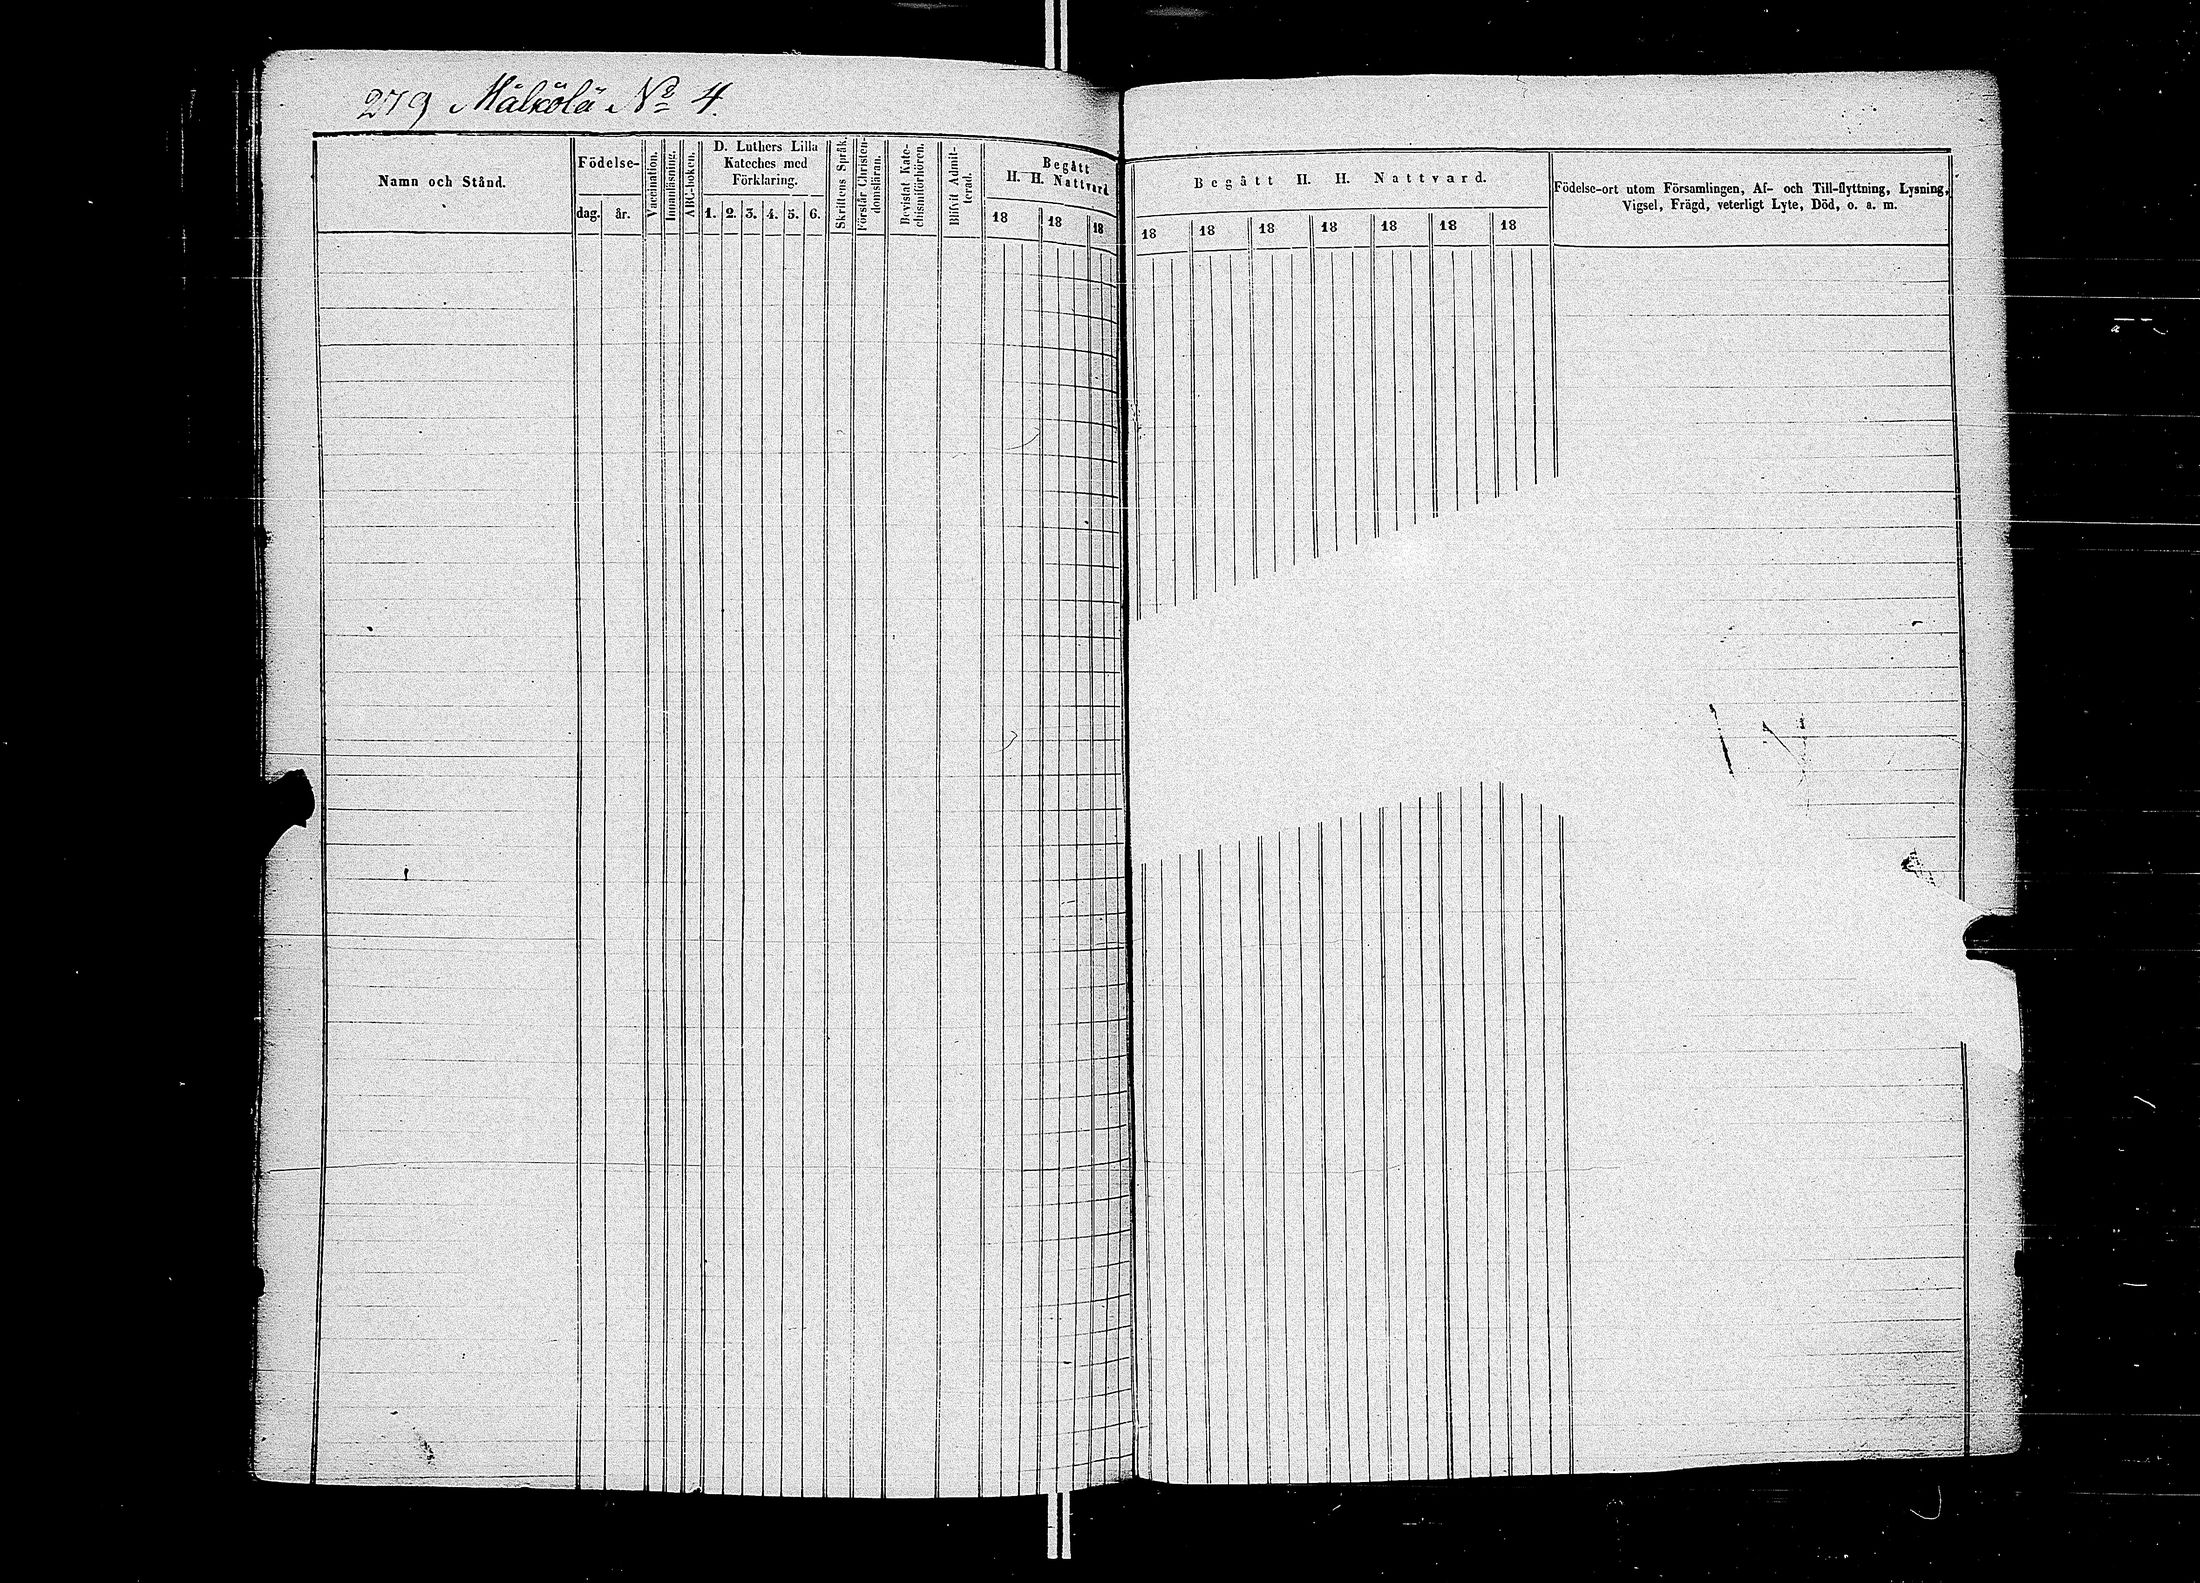 279 Mälkölä No 4.
Namn och Stånd.
Födelse-
dag. år.
Vaccination.
Innanläsning.
ABC-boken.
D. Luthers Lilla
Kateches med
Förklaring.
1. 2. 3. 4. 5. 6.
Skriftens Språk.
Förstår Christen-
domsläran.
Bevistat Kate-
chismiförhören.
Blifvit Admit-
terad.
Begått
H. H. Nattvard
18 18 18
Begått H. H. Nattvard.
18 18 18 18 18 18 18
Födelse-ort utom Församlingen, Af- och Till-flyttning, Lysning,
Vigsel, Frägd, veterligt Lyte, Död, o. a. m.